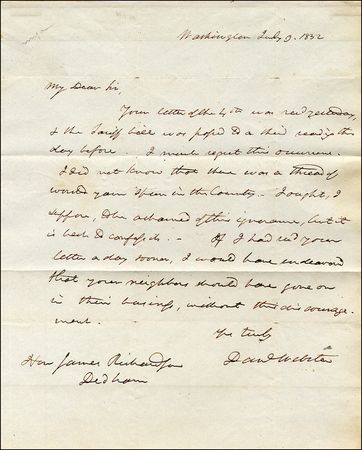 Washington July 9. 1832
My Dear Sir,
Your letter of the 4th was recd yesterday,
& the Tariff bill was passed to a third reading the
day before. I much regret this occurrence.
I did not know that there was a thread of
worsted yarn spun in the Country. I ought, I
suppose, to be ashamed of this ignorance, but it
is best to confess it. - If I had recd your
letter a day sooner, I would have endeavored
that your neighbors should have gone on
in their business, without this discourage-
ment.
Yrs truly
Danl Webster
Hon James Richardson
Dedham